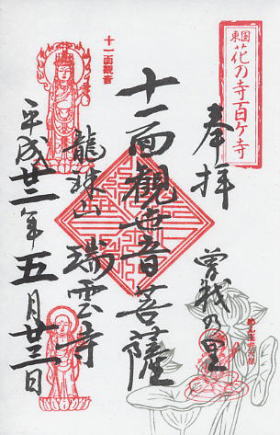 東国
花の寺百ヶ寺
奉拝
曽我の里
十一面観世音菩薩
十一面観音
龍珠山 瑞雲寺
平成廿二年五月廿三日